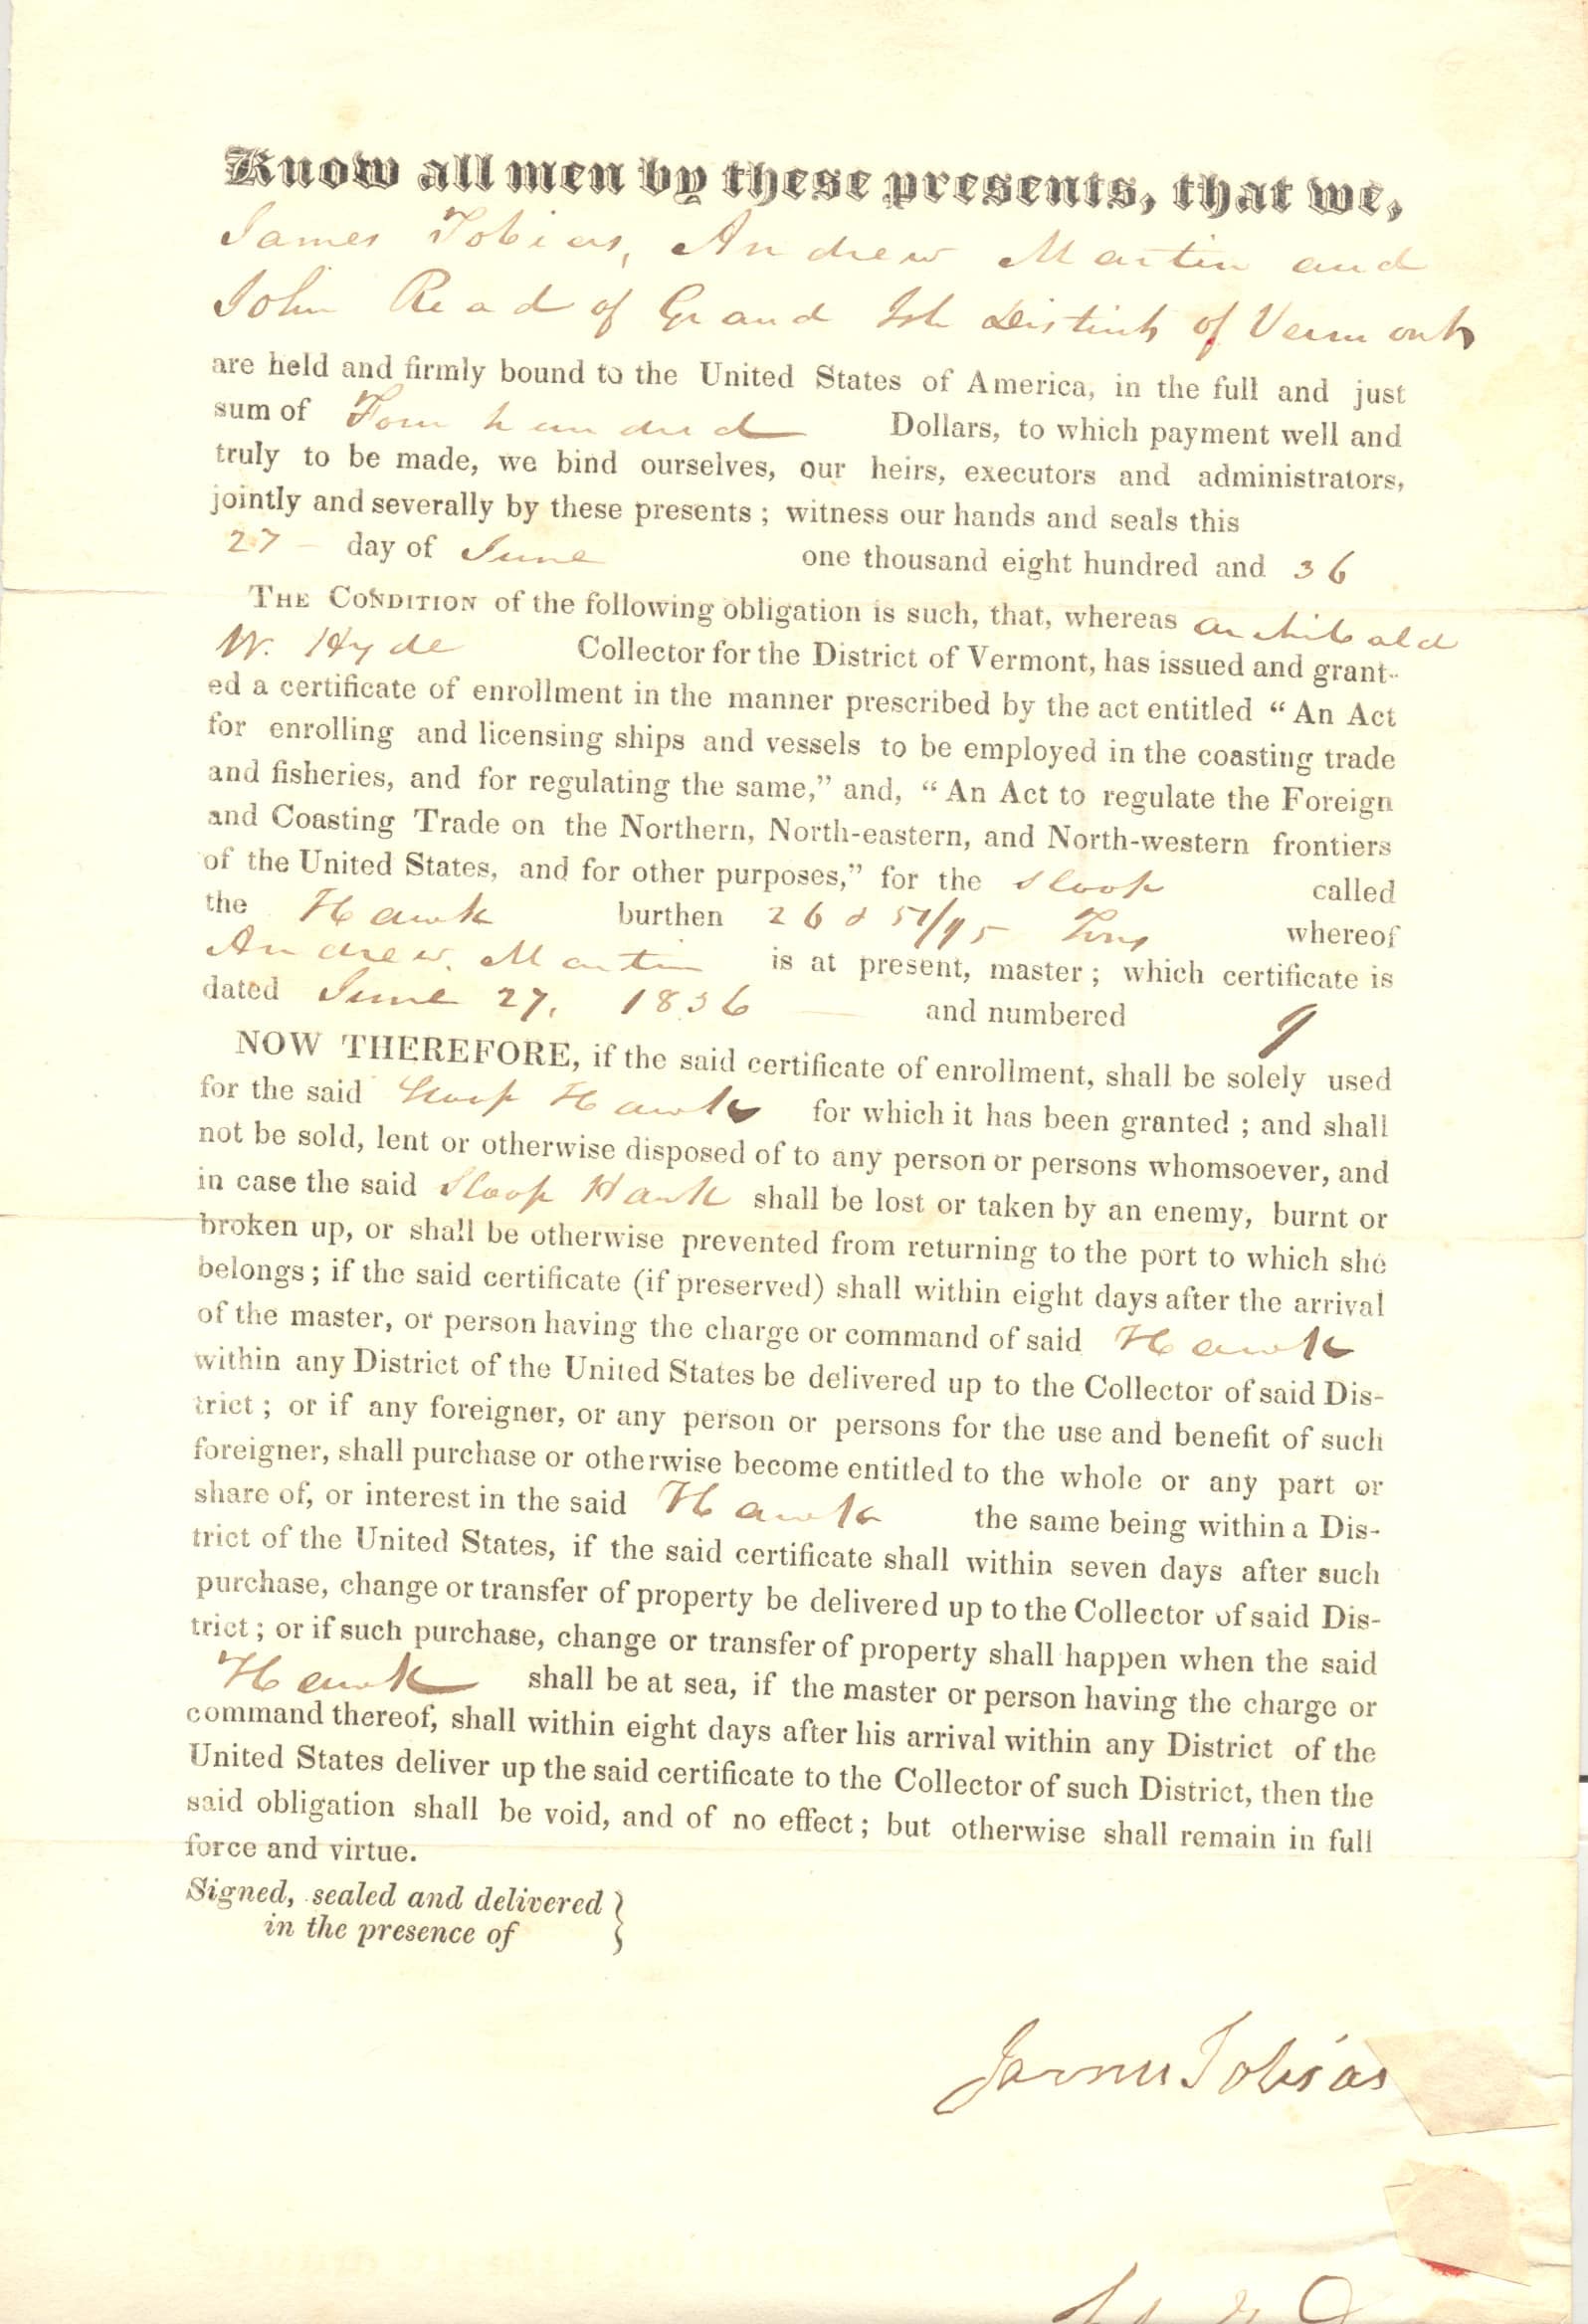 Know all men by these presents, that we,
James Tobias, Andrew Martin and
John Read of Grand Isle District of Vermont
are held and firmly bound to the United States of America, in the full and just
sum of Four hundred Dollars, to which payment well and
truly to be made, we bind ourselves, our heirs, executors and administrators,
jointly and severally by these presents; witness our hands and seals this
27 day of June one thousand eight hundred and 36
THE CONDITION of the following obligation is such, that, whereas Archibald
W. Hyde Collector for the District of Vermont, has issued and grant-
ed a certificate of enrollment in the manner prescribed by the act entitled "An Act
for enrolling and licensing ships and vessels to be employed in the coasting trade
and fisheries, and for regulating the same," and, "An Act to regulate the Foreign
and Coasting Trade on the Northern, North-eastern, and North-western frontiers
of the United States, and for other purposes," for the Sloop called
the Hawk burthen 26 & 51/95 Tons whereof
Andrew Martin is at present, master; which certificate is
dated June 27, 1836 and numbered 9
NOW THEREFORE, if the said certificate of enrollment, shall be solely used
for the said Sloop Hawk for which it has been granted; and shall
not be sold, lent or otherwise disposed of to any person or persons whomsoever, and
in case the said Sloop Hawk shall be lost or taken by an enemy, burnt or
broken up, or shall be otherwise prevented from returning to the port to which she
belongs; if the said certificate (if preserved) shall within eight days after the arrival
of the master, or person having the charge or command of said Hawk
within any District of the United States be delivered up to the Collector of said Dis-
trict; or if any foreigner, or any person or persons for the use and benefit of such
foreigner, shall purchase or otherwise become entitled to the whole or any part or
share of, or interest in the said Hawk the same being within a Dis-
trict of the United States, if the said certificate shall within seven days after such
purchase, change or transfer of property be delivered up to the Collector of said Dis-
trict; or if such purchase, change or transfer of property shall happen when the said
Hawk shall be at sea, if the master or person having the charge or
command thereof, shall within eight days after his arrival within any District of the
United States deliver up the said certificate to the Collector of such District, then the
said obligation shall be void, and of no effect; but otherwise shall remain in full
force and virtue.
Signed, sealed and delivered }
in the presence of
James Tobias